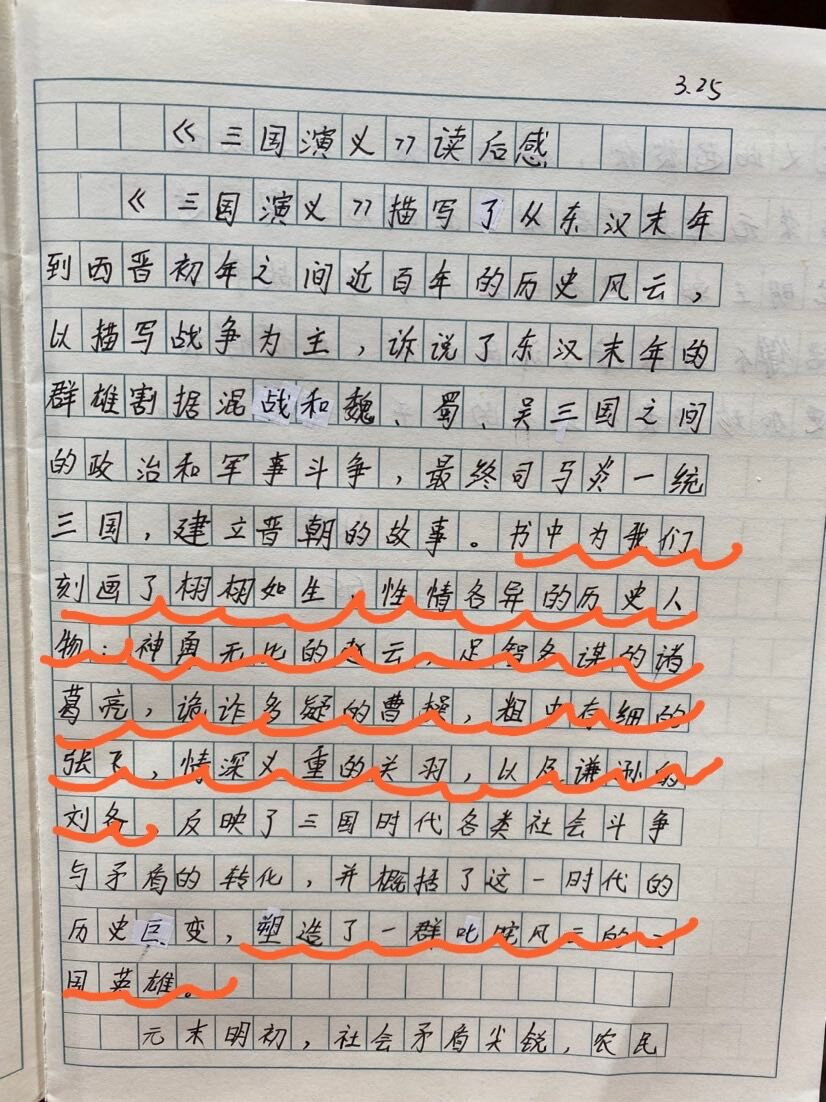 3.25
《三国演义》读后感
《三国演义》描写了从东汉末年
到西晋初年之间近百年的历史风云，
以描写战争为主，诉说了东汉末年的
群雄割据混战和魏、蜀、吴三国之间
的政治和军事斗争，最终司马炎一统
三国，建立晋朝的故事。书中为我们
刻画了栩栩如生，性情各异的历史人
物：神勇无比的赵云，足智多谋的诸
葛亮，诡诈多疑的曹操，粗中有细的
张飞，情深义重的关羽，以及谦逊的
刘备，反映了三国时代各类社会斗争
与矛盾的转化，并概括了这一时代的
历史巨变，塑造了一群叱咤风云的三
国英雄。
元末明初，社会矛盾尖锐，农民